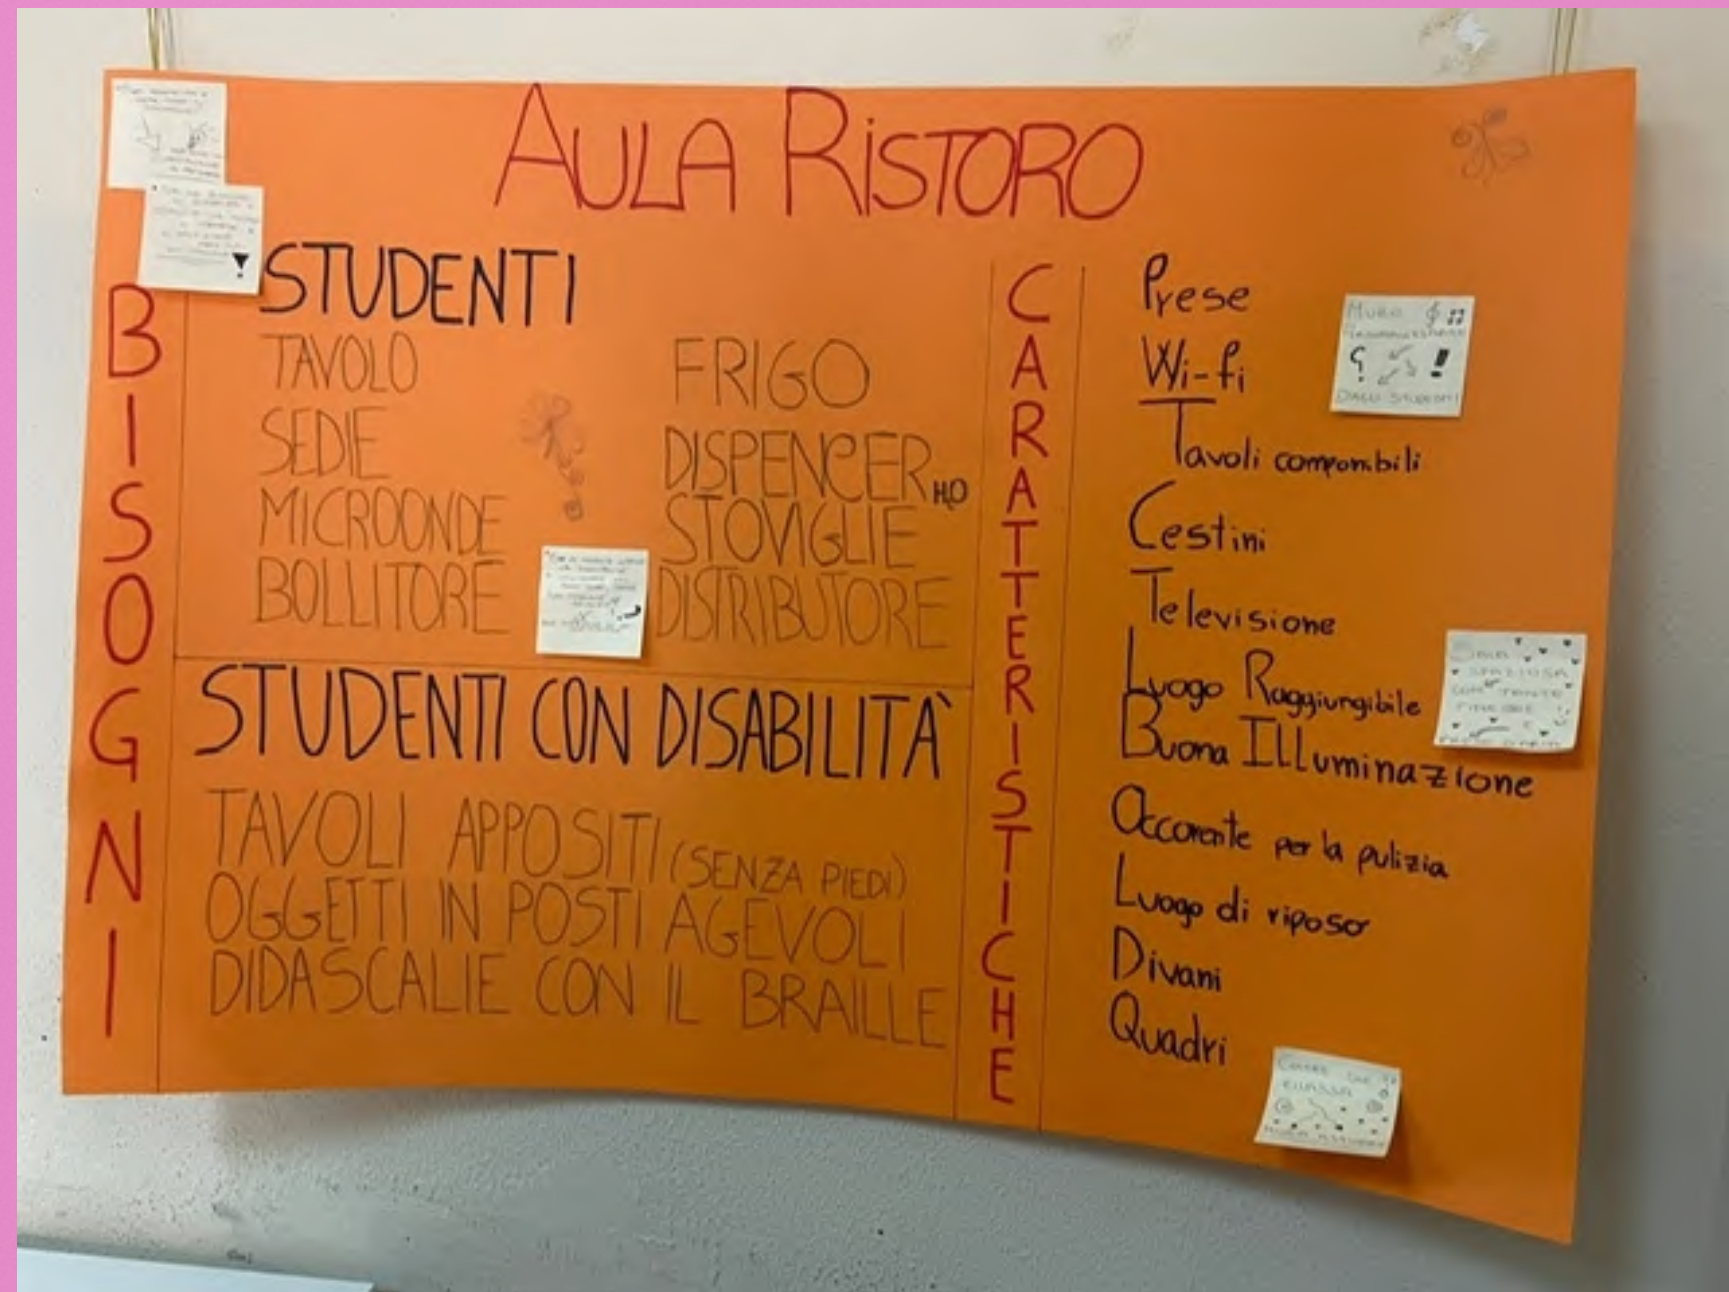 AULA RISTORO
BISOGNI
STUDENTI
TAVOLO
SEDIE
MICROONDE
BOLLITORE
FRIGO
DISPENCER H2O
STOVIGLIE
DISTRIBUTORE
STUDENTI CON DISABILITÀ
TAVOLI APPOSITI (SENZA PIEDI)
OGGETTI IN POSTI AGEVOLI
DIDASCALIE CON IL BRAILLE
CARATTERISTICHE
Prese
Wi-fi
Tavoli componibili
Cestini
Televisione
Luogo Raggiungibile
Buona ILLuminazione
Occorente per la pulizia
Luogo di riposo
Divani
Quadri
MURO
DAGLI STUDENTI
SPAZIOSA
CON TANTE
RILASSA